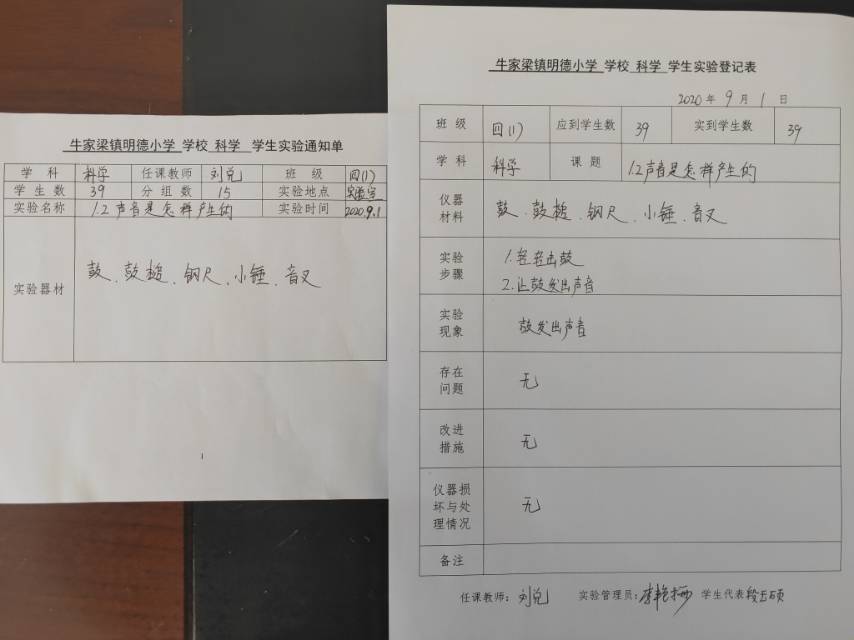 牛家梁镇明德小学 学校 科学 学生实验通知单
学科 科学 任课教师 刘兑 班级 四(1)
学生数 39 分组数 15 实验地点 实验室
实验名称 1.2声音是怎样产生的 实验时间 2020.9.1
实验器材 鼓、鼓槌、钢尺、小锤、音叉
1
牛家梁镇明德小学 学校 科学 学生实验登记表
2020年 9月 1日
班级 四(1) 应到学生数 39 实到学生数 39
学科 科学 课题 1.2声音是怎样产生的
仪器材料 鼓、鼓槌、钢尺、小锤、音叉
实验步骤 1.轻轻击鼓
2.让鼓发出声音
实验现象 鼓发出声音
存在问题 无
改进措施 无
仪器损坏与处理情况 无
备注
任课教师：刘兑 实验管理员： 学生代表